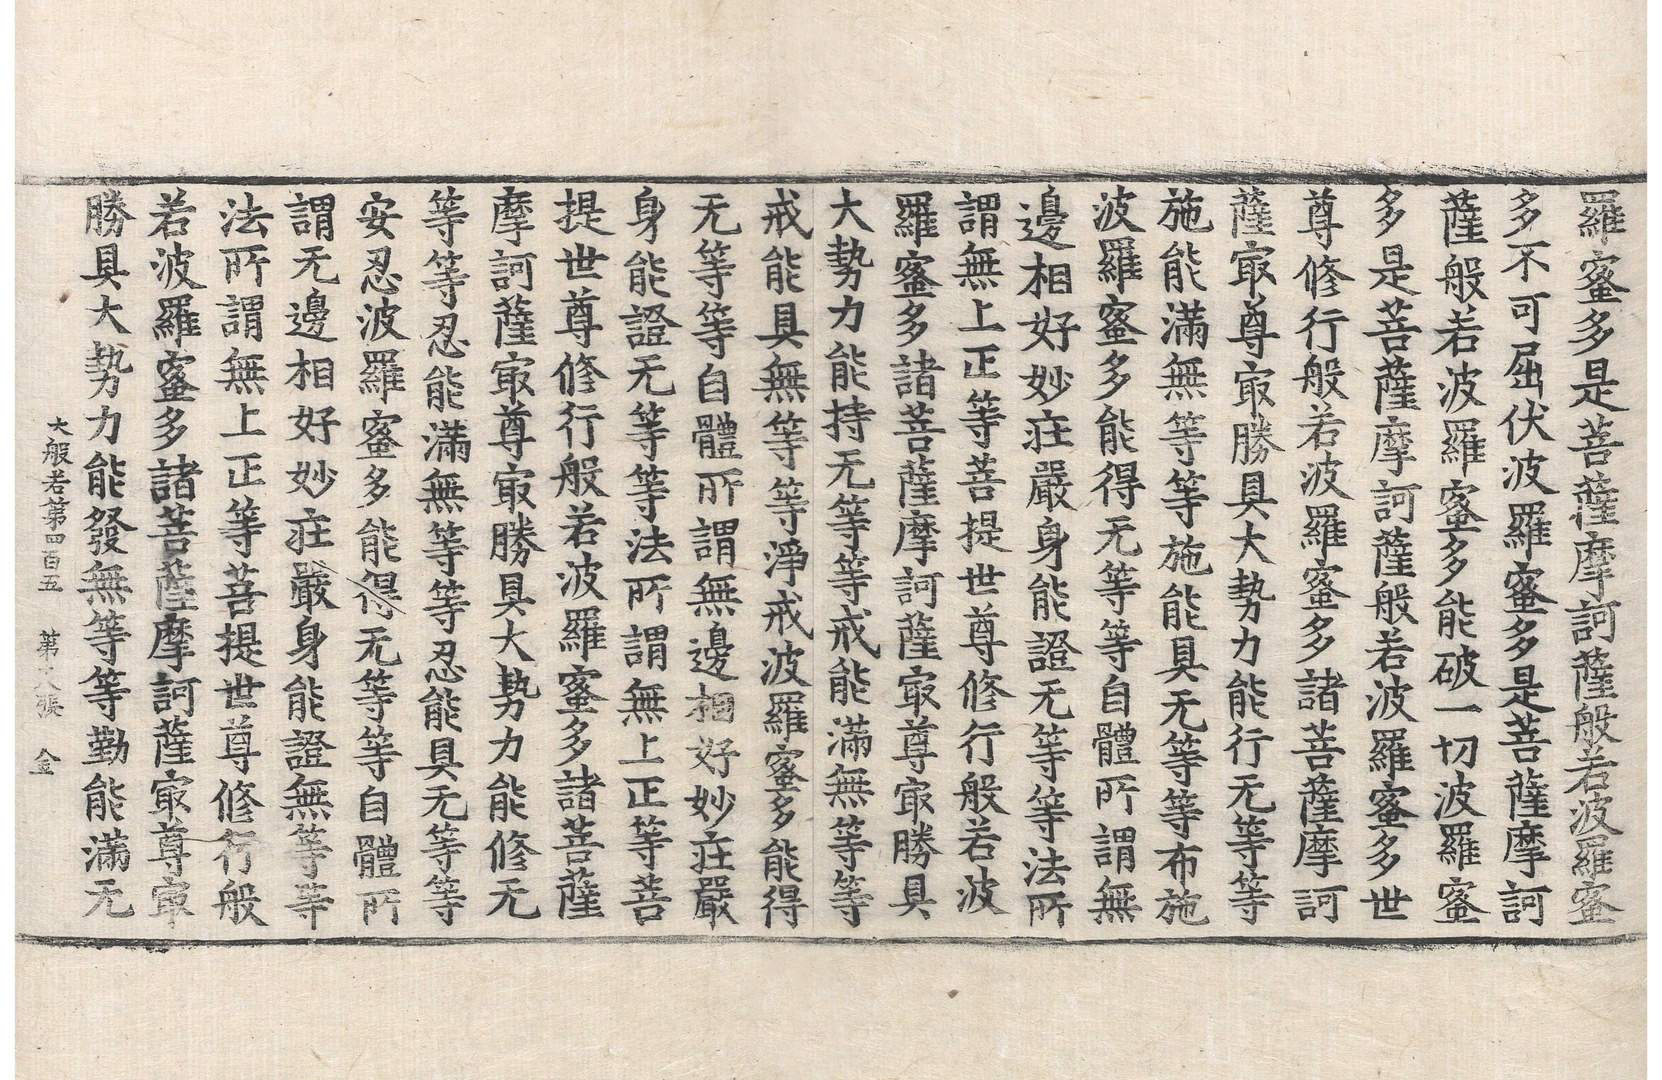 羅蜜多是菩薩摩訶薩般若波羅蜜
多不可屈伏波羅蜜多是菩薩摩訶
薩般若波羅蜜多能破一切波羅蜜
多是菩薩摩訶薩般若波羅蜜多世
尊修行般若波羅蜜多諸菩薩摩訶
薩㝡尊㝡勝具大勢力能行无等等
施能滿無等等施能具无等等布施
波羅蜜多能得无等等自體所謂無
邊相好妙莊嚴身能證无等等法所
謂無上正等菩提世尊修行般若波
羅蜜多諸菩薩摩訶薩㝡尊㝡勝具
大勢力能持无等等戒能滿無等等
戒能具無等等淨戒波羅蜜多能得
无等等自體所謂無邊相好妙莊嚴
身能證无等等法所謂無上正等菩
提世尊修行般若波羅蜜多諸菩薩
摩訶薩㝡尊㝡勝具大勢力能修无
等等忍能滿無等等忍能具无等等
安忍波羅蜜多能得无等等自體所
謂无邊相好妙莊嚴身能證無等等
法所謂無上正等菩提世尊修行般
若波羅蜜多諸菩薩摩訶薩㝡尊㝡
勝具大勢力能發無等等勤能滿无
大般若第四百五 第 張 金